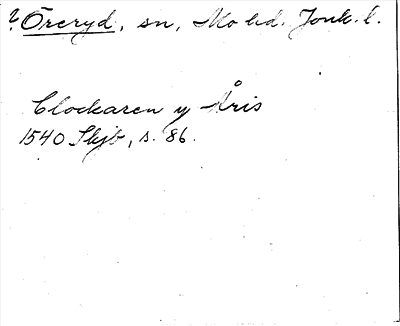 ? Öreryd, sn, Mo hd. Jönk. l.
Clockaren y Åris
1540 Skjb, s. 86.